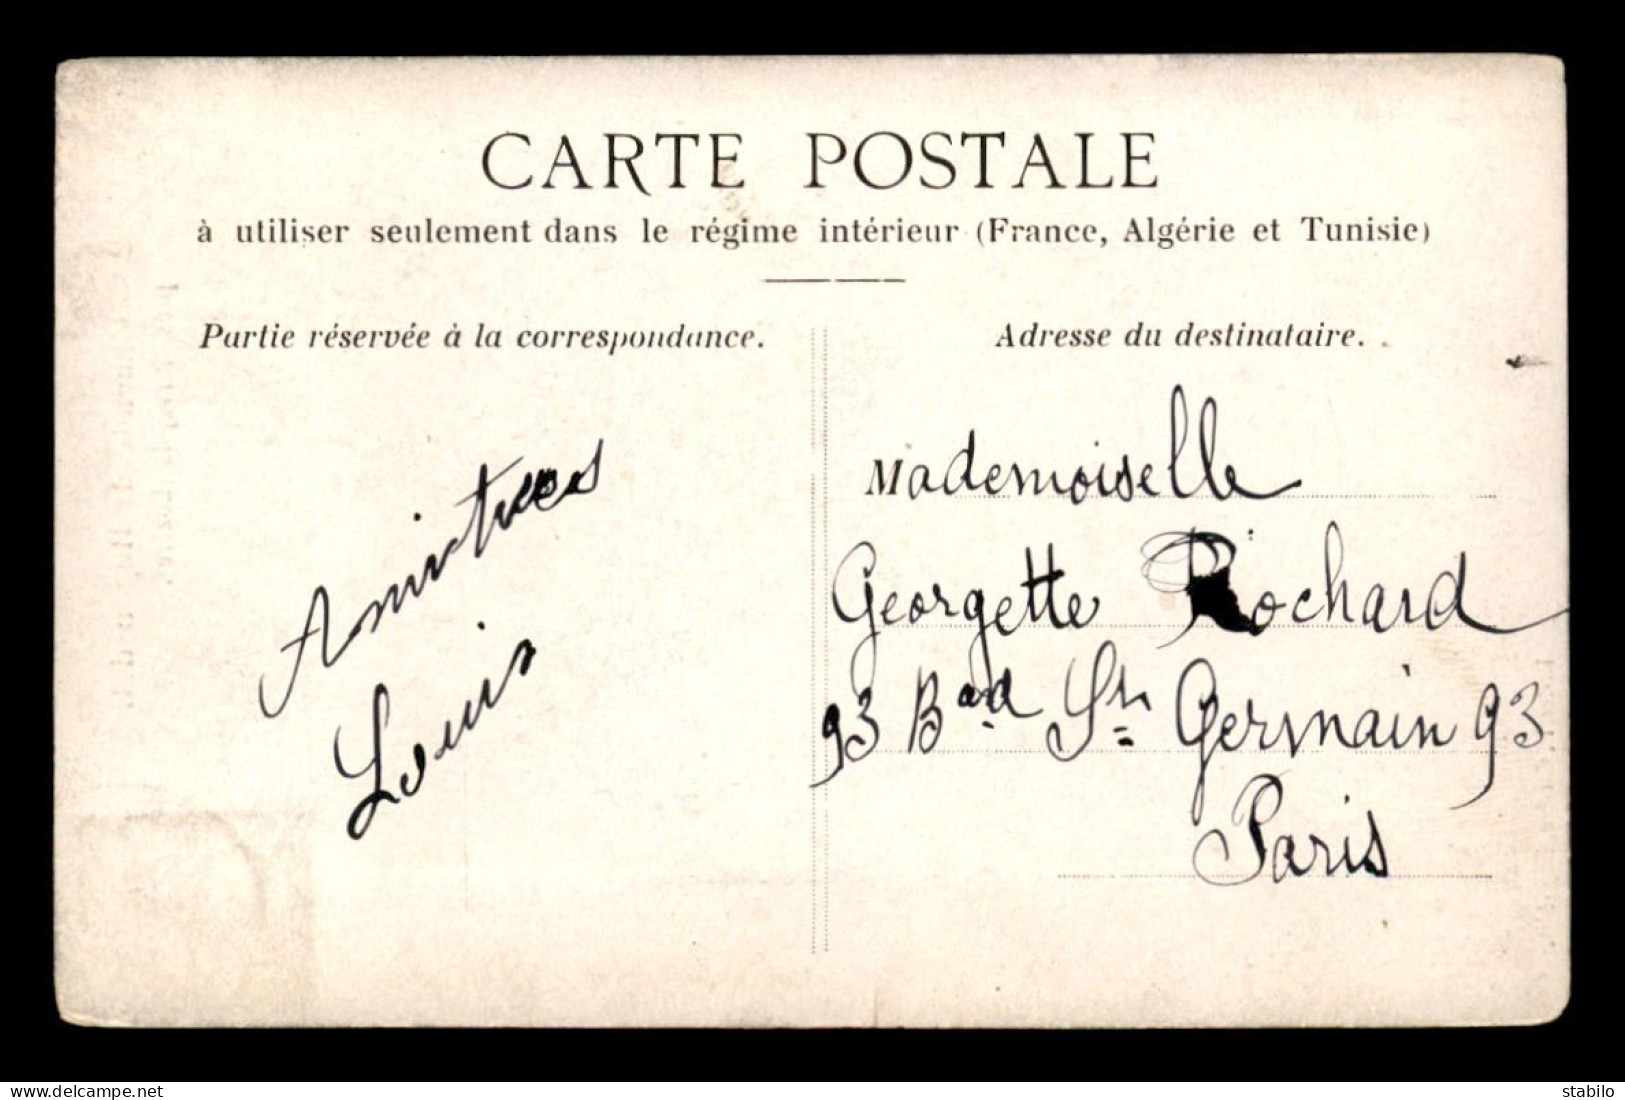 CARTE POSTALE
à utiliser seulement dans le régime intérieur (France, Algérie et Tunisie)
Partie réservée à la correspondance.
Amitiés
Louis
Adresse du destinataire.
Mademoiselle
Georgette Rochard
93 Bard St Germain 93
Paris
www.delcampe.net
stabilo